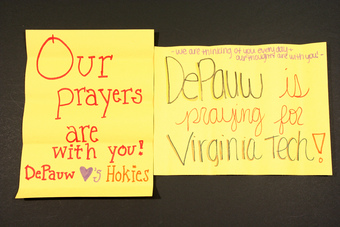 Our
prayers
are
with you!
DePauw ♥'s Hokies
- we are thinking of you everyday -
our thoughts are with you! -
DePauw is
praying for
Virginia Tech!